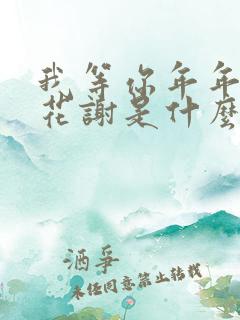 我等你年年
花謝是什麼
酒爭
未经同意禁止转载